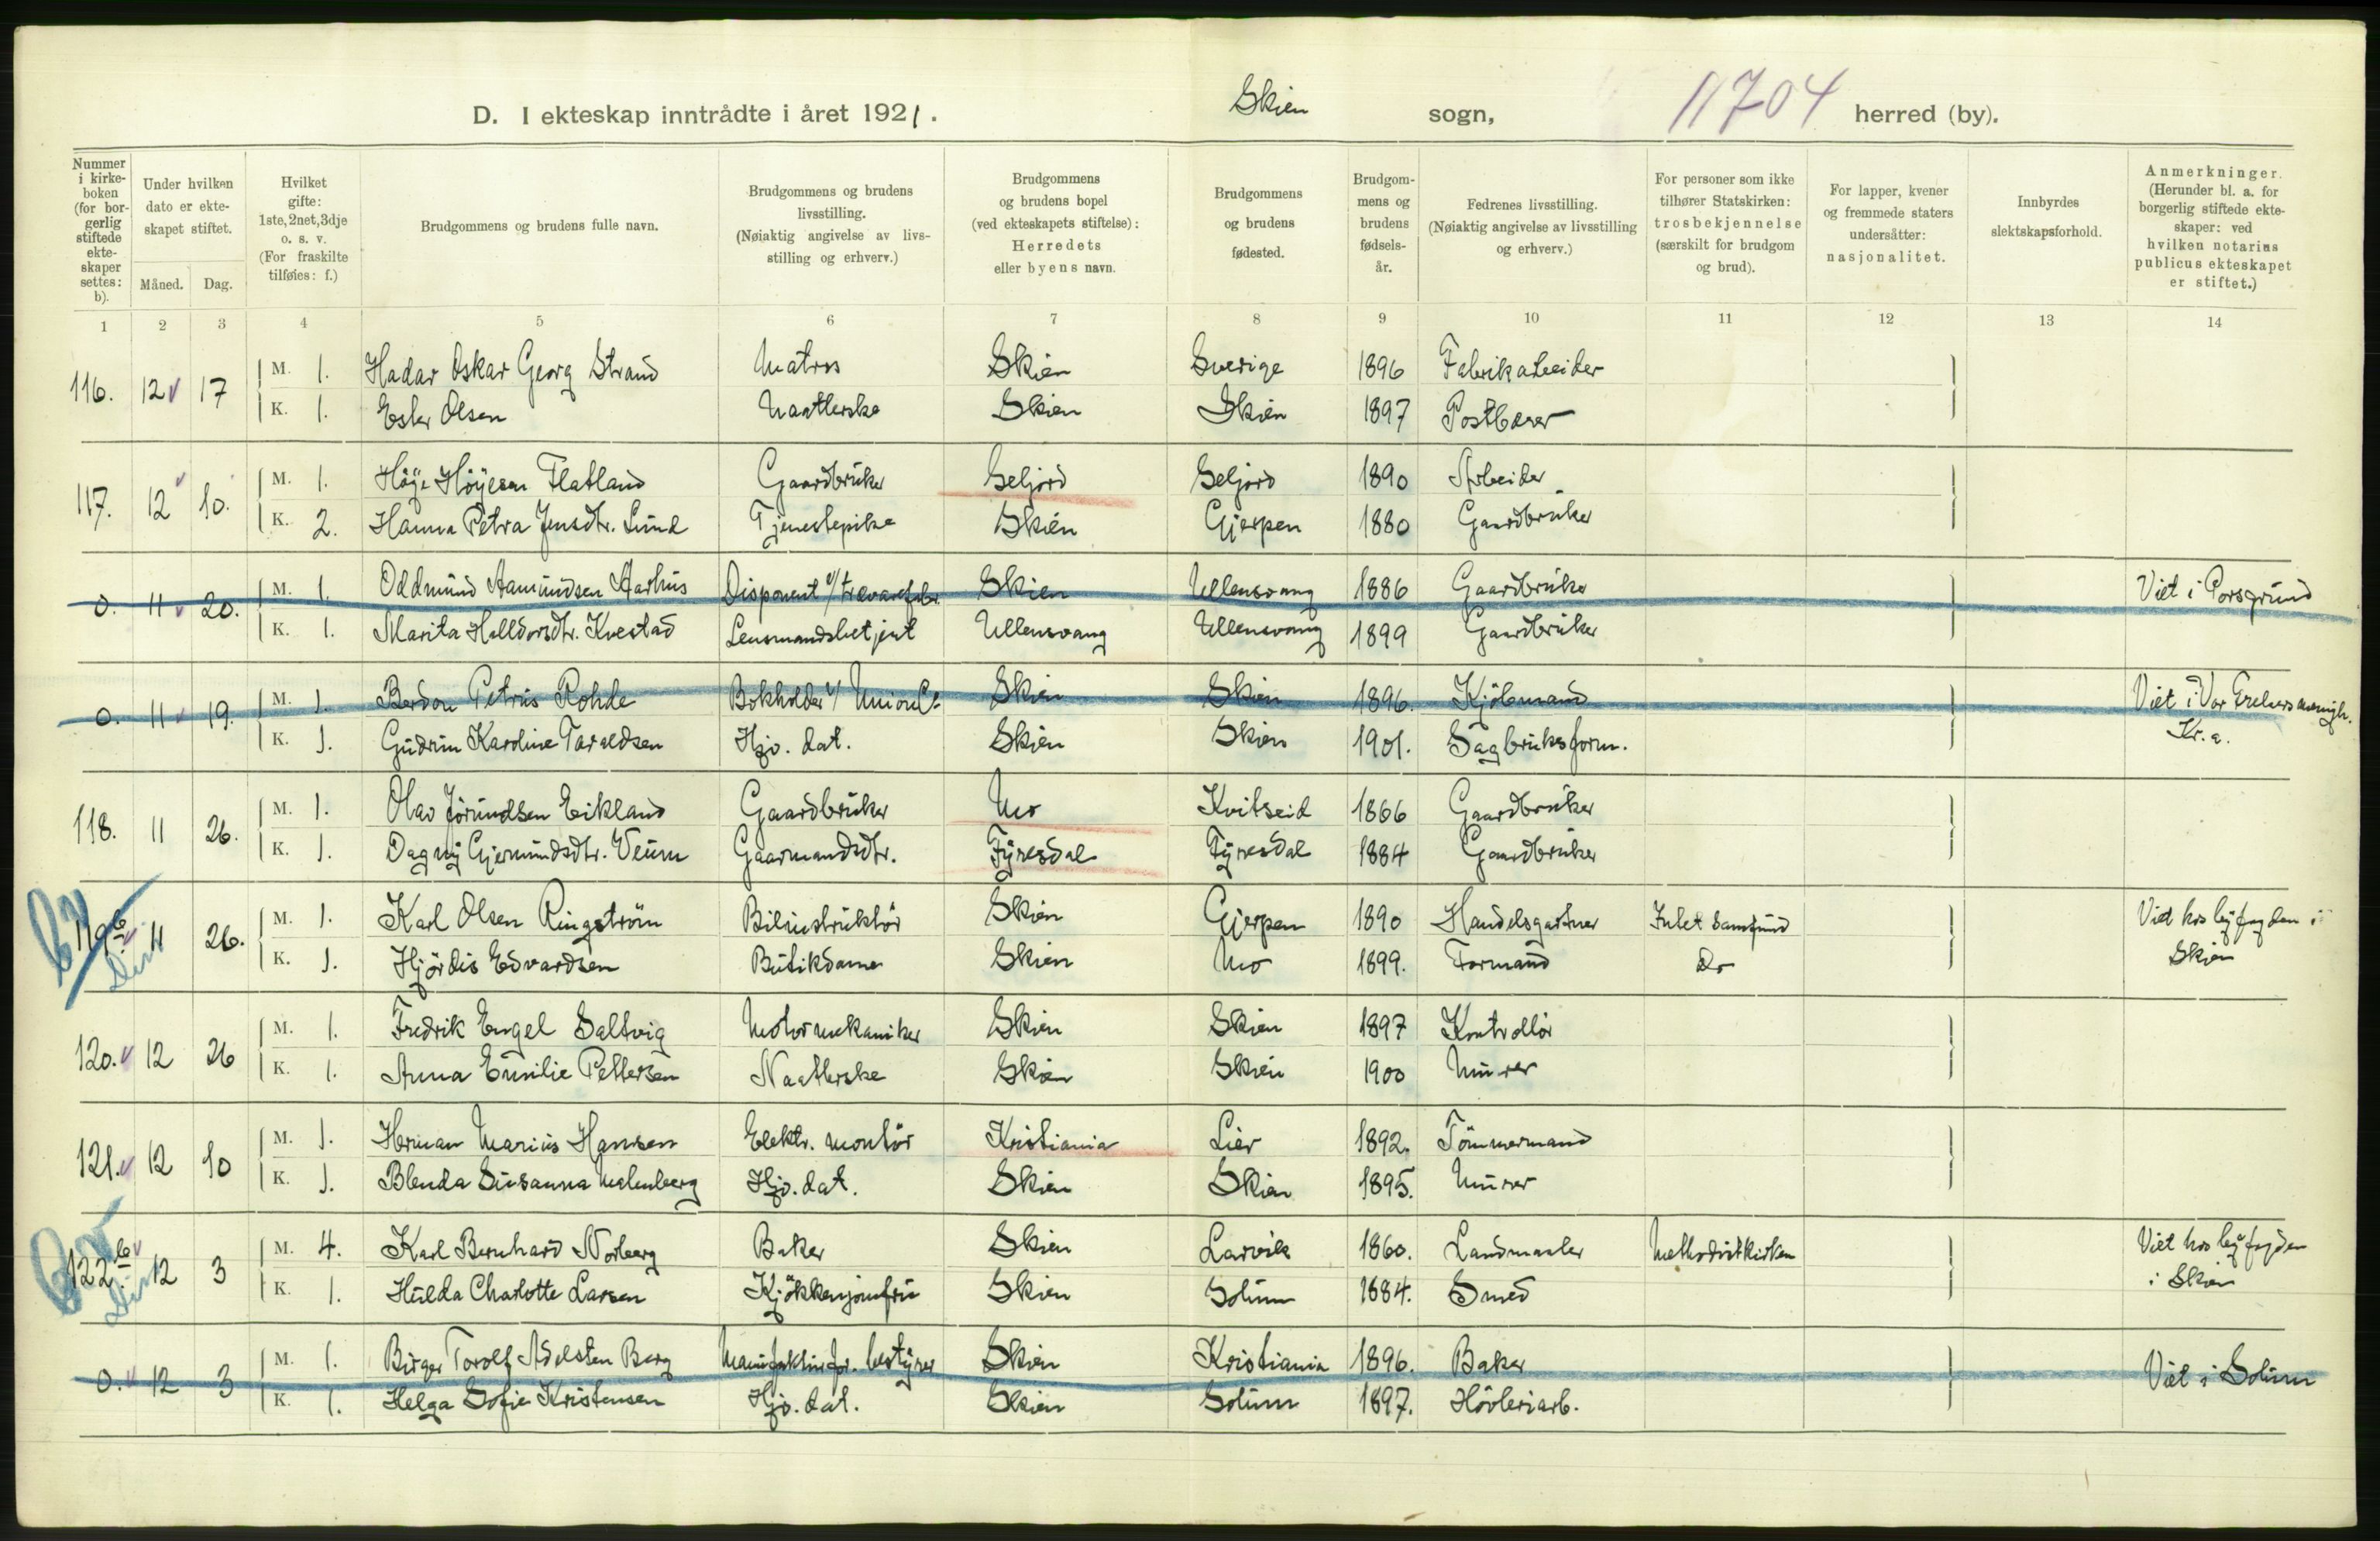 D. I ekteskap inntrådte i året 1921. Skien sogn, 11704 herred (by).
Nummer i kirkeboken (for borgerlig stiftede ekteskaper settes: b).
Under hvilken dato er ekteskapet stiftet.
Måned. Dag.
Hvilket gifte: 1ste, 2net, 3dje o. s. v. (For fraskilte tilføies: f.)
Brudgommens og brudens fulle navn.
Brudgommens og brudens livsstilling. (Nøiaktig angivelse av livsstilling og erhverv.)
Brudgommens og brudens bopel (ved ekteskapets stiftelse): Herredets eller byens navn.
Brudgommens og brudens fødested.
Brudgommens og brudens fødselsår.
Fedrenes livsstilling. (Nøiaktig angivelse av livsstilling og erhverv.)
For personer som ikke tilhører Statskirken: trosbekjennelse (særskilt for brudgom og brud).
For lapper, kvener og fremmede staters undersåtter: nasjonalitet.
Innbyrdes slektskapsforhold.
Anmerkninger. (Herunder bl. a. for borgerlig stiftede ekteskaper: ved hvilken notarius publicus ekteskapet er stiftet.)
1 2 3 4 5 6 7 8 9 10 11 12 13 14
116. 12 17 M. 1. Hadar Oskar Georg Strand Matros Skien Sverige 1896 Fabrikarbeider
K. 1. Ester Olsen Naatlerske Skien Skien 1897 Postbærer
117. 12 10. M. 1. Høye Høyesen Flatland Gaardbruker Seljord Seljord 1890 Arbeider
K. 2. Hanna Petra Jensdtr. Lund Tjenestepike Skien Gjerpen 1880 Gaardbruker
0. 11 20. M. 1. Oddmund Aamundsen Aarhus Disponent v/ trævarefabr. Skien Ullensvang 1886 Gaardbruker Viet i Porsgrund
K. 1. Marita Halldorsdtr. Kvestad Lensmandsbetjent Ullensvang Ullensvang 1899 Gaardbruker
0. 11 19. M. 1. Petrus Rohde Bokholder v/ Union Co Skien Skien 1896. Kjøbmand Viet i Vor Frelsers menigh.
K. 1. Gudrun Karoline Taraldsen Hjv. dat. Skien Skien 1901. Sagbruksform. Kr.a.
118. 11 26. M. 1. Olav Jørundsen Eikland Gaardbruker Mo Kvitseid 1866 Gaardbruker
K. 1. Dagny Gjermundsdtr. Veum Gaarmandsdtr. Fyresdal Fyresdal 1884 Gaardbruker
119 b 11 26. M. 1. Karl Olsen Ringstrøm Bilinstruktør Skien Gjerpen 1890 Handelsgartner Intet samfund Viet hos byfogden i
K. 1. Hjördis Edvardsen Butikdame Skien Mo 1899. Formand Do Skien
120. 12 26 M. 1. Fredrik Engel Saltvig Motormekaniker Skien Skien 1897 Kontrollør
K. 1. Anna Emilie Pettersen Naatlerske Skien Skien 1900 Murer
121. 12 10 M. 1. Herman Marius Hansen Elektr. montør Kristiania Lier 1892. Tømmermand
K. 1. Blenda Susanna Malmberg Hjv. dat. Skien Skien 1895. Murer
122 b. 12 3 M. 4. Karl Bernhard Norberg Baker Skien Larvik 1860. Landmaaler Methodistkirken Viet hos byfogden
K. 1. Hulda Charlotte Larsen Kjøkkenjomfru Skien Solum 1884. Smed i Skien
0. 12 3 M. 1. Birger Torolf Adelsten Berg Manufakturfor. bestyrer Skien Kristiania 1896. Baker Viet i Solum
K. 1. Helga Sofie Kristensen Hjv. dat. Skien Solum 1897. Høvleriarb.